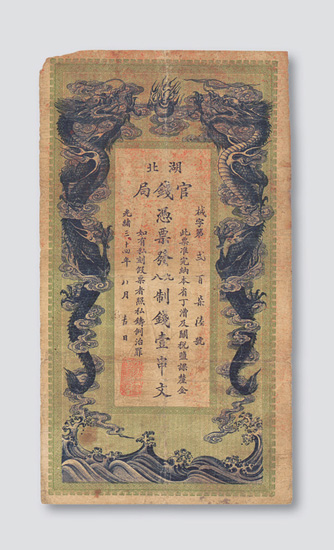 湖北
官錢局
械字第 弍百柒陸號
此票准完納本省丁漕及關稅鹽課釐金
憑票發九八制錢壹串文
如有私刻假票者照私鑄例治罪
光緒三十四年 八月 吉日